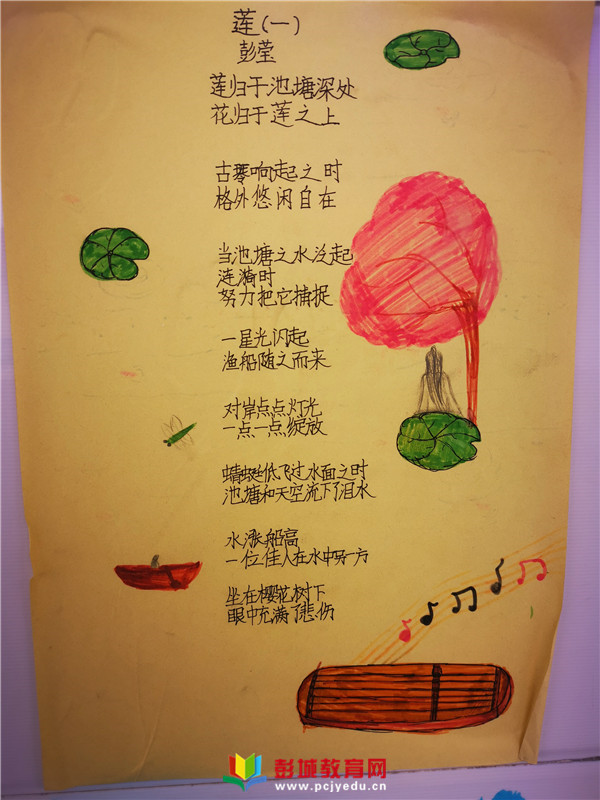 莲(一)
彭莹
莲归于池塘深处
花归于莲之上
古琴响起之时
格外悠闲自在
当池塘之水泛起
涟漪时
努力把它捕捉
一星光闪起
渔船随之而来
对岸点点灯光
一点一点绽放
蜻蜓低飞过水面之时
池塘和天空流下了泪水
水涨船高
一位佳人在水中另一方
坐在樱花树下
眼中充满了悲伤
彭城教育网
www.pcjyedu.cn